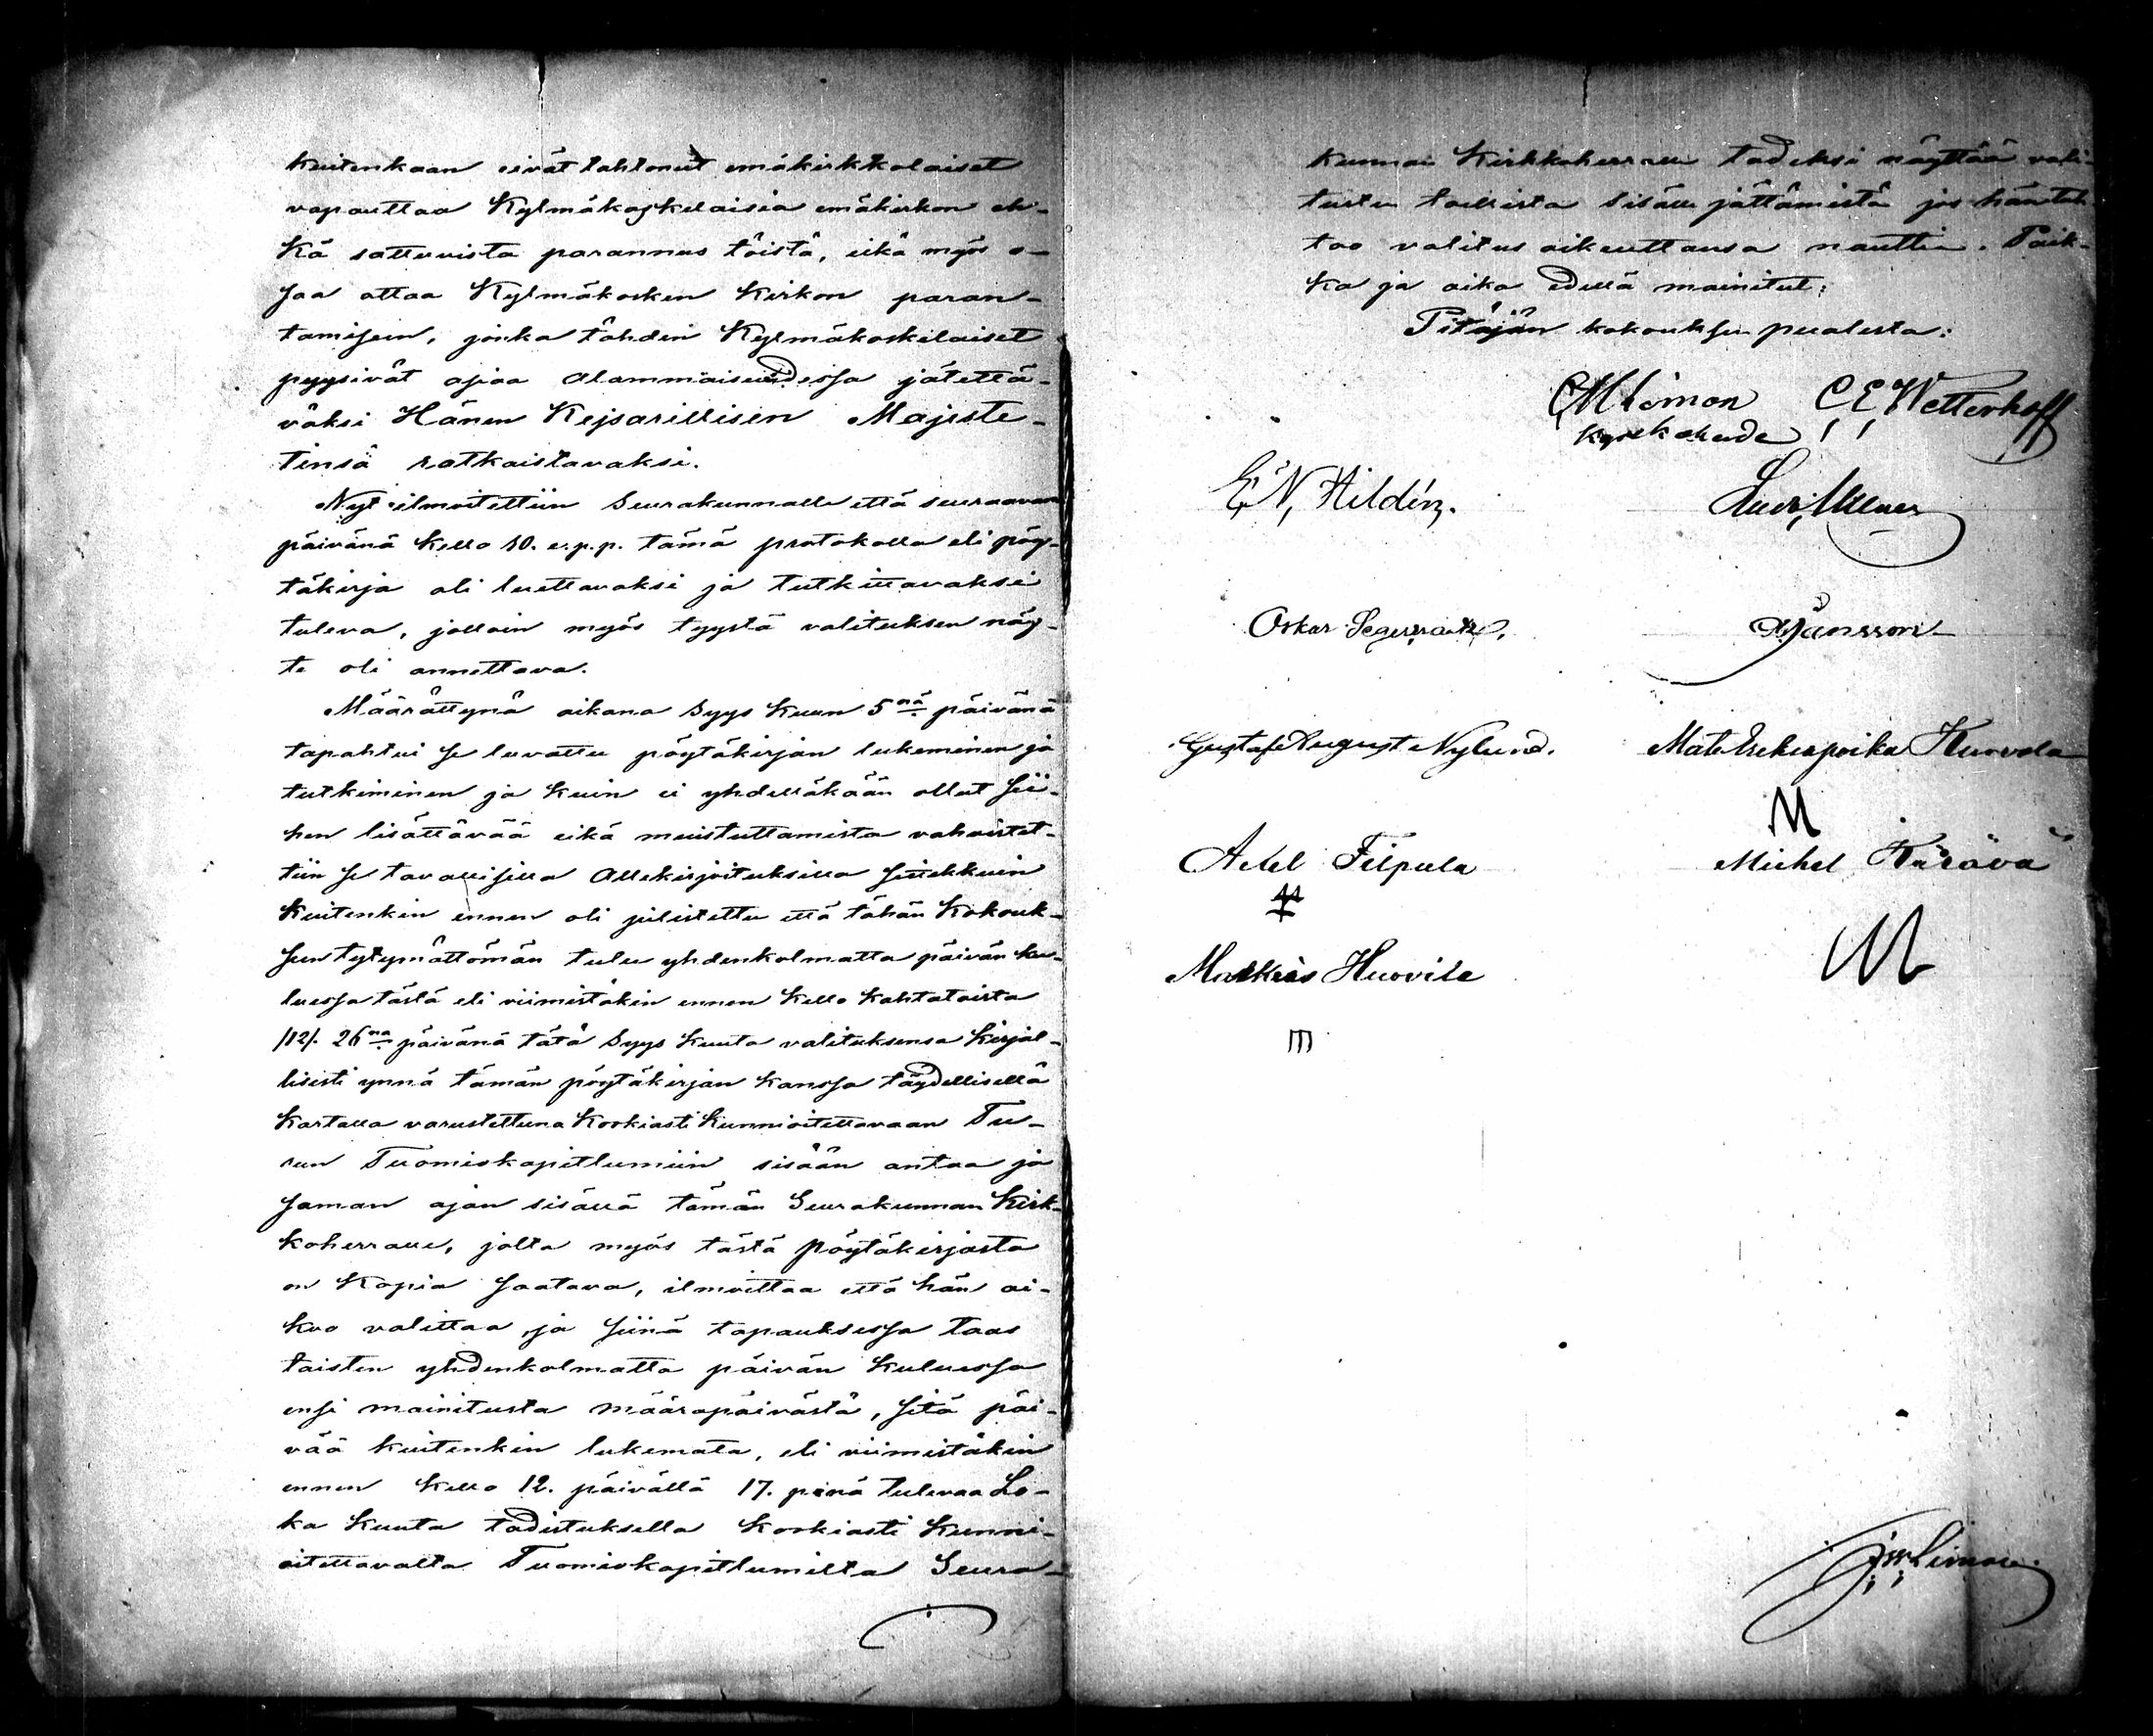 kuitenkaan eivät tahtonut emäkirkkolaiset
vapauttaa Kylmäkoskelaisia emäkirkon eh-
kä sattuvista parannus töistä, eikä myös o-
saa ottaa Kylmäkosken Kirkon paran-
tamiseen, jonka tähden Kylmäkoskilaiset
pyysivät asiaa alammaisuudessa jätettä-
väksi Hänen Kejsarillisen Majeste-
tinsä ratkaistavaksi.
Nyt ilmoitettiin Seurakunnalle että seuraavana
päivänä kello 10. e.p.p. tämä protokolla eli pöy-
täkirja oli luettavaksi ja tutkittavaksi
tuleva, jolloin myös tyystä valituksen näy-
te oli annettava.
Määrättynä aikana Syys kuun 5nä päivänä
tapahtui se luvattu pöytäkirjan lukeminen ja
tutkiminen ja kuin ei yhdelläkään ollut sii-
hen lisättävää eikä muistuttamista vahvistet-
tiin se tavallisilla allekirjoituksilla sittekkuin
kuitenkin ennen oli julistettu että tähän kokouk-
seen tytymättömän tulee yhdenkolmatta päivän ku-
luessa tästä eli viimistäkin ennen kello kahtatoista
/12/. 26na päivänä tätä Syys kuuta valituksensa kirjal-
lisesti ynnä tämän pöytäkirjan kanssa täydellisellä
kartalla varustettuna korkiasti kunnioitettavaan Tu-
run Tuomiokapitlumiin sisään antaa ja
saman ajan sisällä tämän Seurakunnan Kirk-
koherralle, jolta myös tästä pöytäkirjasta
on kopia saatava, ilmoittaa että hän ai-
koo valittaa, ja siinä tapauksessa taas
toisten yhdenkolmatta päivän kuluessa
ensi mainitusta määräpäivästä, sitä päi-
vää kuitenkin lukemata, eli viimistäkin
ennen kello 12. päivällä 17. pänä tulevaa Lo-
ka kuuta todistuksella korkiasti kunni-
oitettavalta Tuomiokapitlumilta Seura-
kunnan Kirkkoherralle todeksi näyttää vali-
tusten tuellista sisälle jättämistä jos hän tah-
too valitus oikeuttansa nauttia. Paik-
ka ja aika edellä mainitut;
Pitäjän kokouksen puolesta:
Limon C E Wetterhoff
E N, Hildén.
Oskar Jansson
Gustaf August Nylund. Kuovola
M
Axel Filpula Michel Kärävä
Markus Huovila M
m